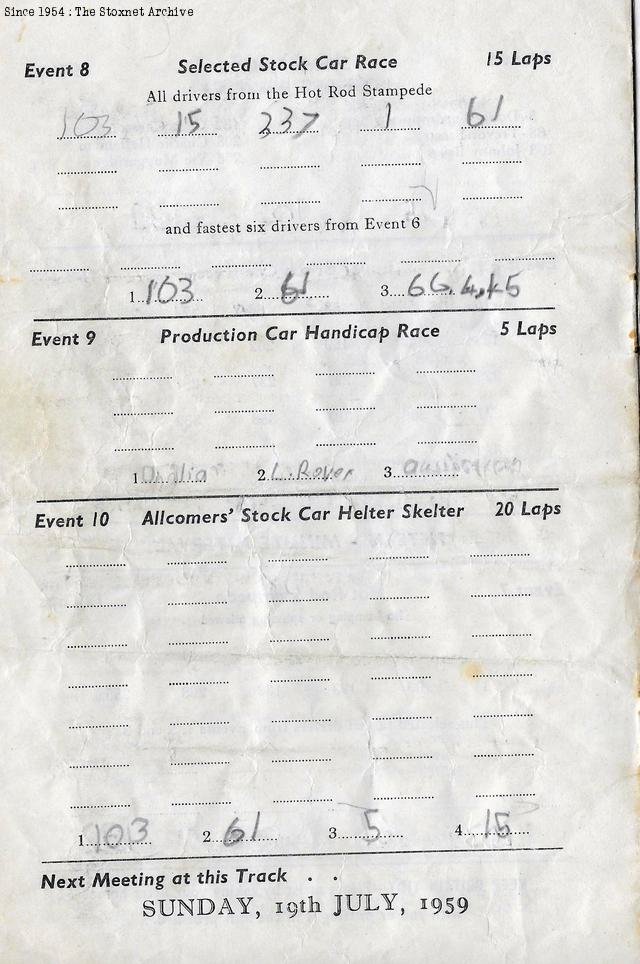 Since 1954 : The Stoxnet Archive
Event 8 Selected Stock Car Race 15 Laps
All drivers from the Hot Rod Stampede
103 15 237 1 61
and fastest six drivers from Event 6
1. 103 2. 61 3. 66, 4, 15
Event 9 Production Car Handicap Race 5 Laps
1. 2. L. Rover 3.
Event 10 Allcomers' Stock Car Helter Skelter 20 Laps
1. 103 2. 61 3. 5 4. 15
Next Meeting at this Track . .
SUNDAY, 19th JULY, 1959